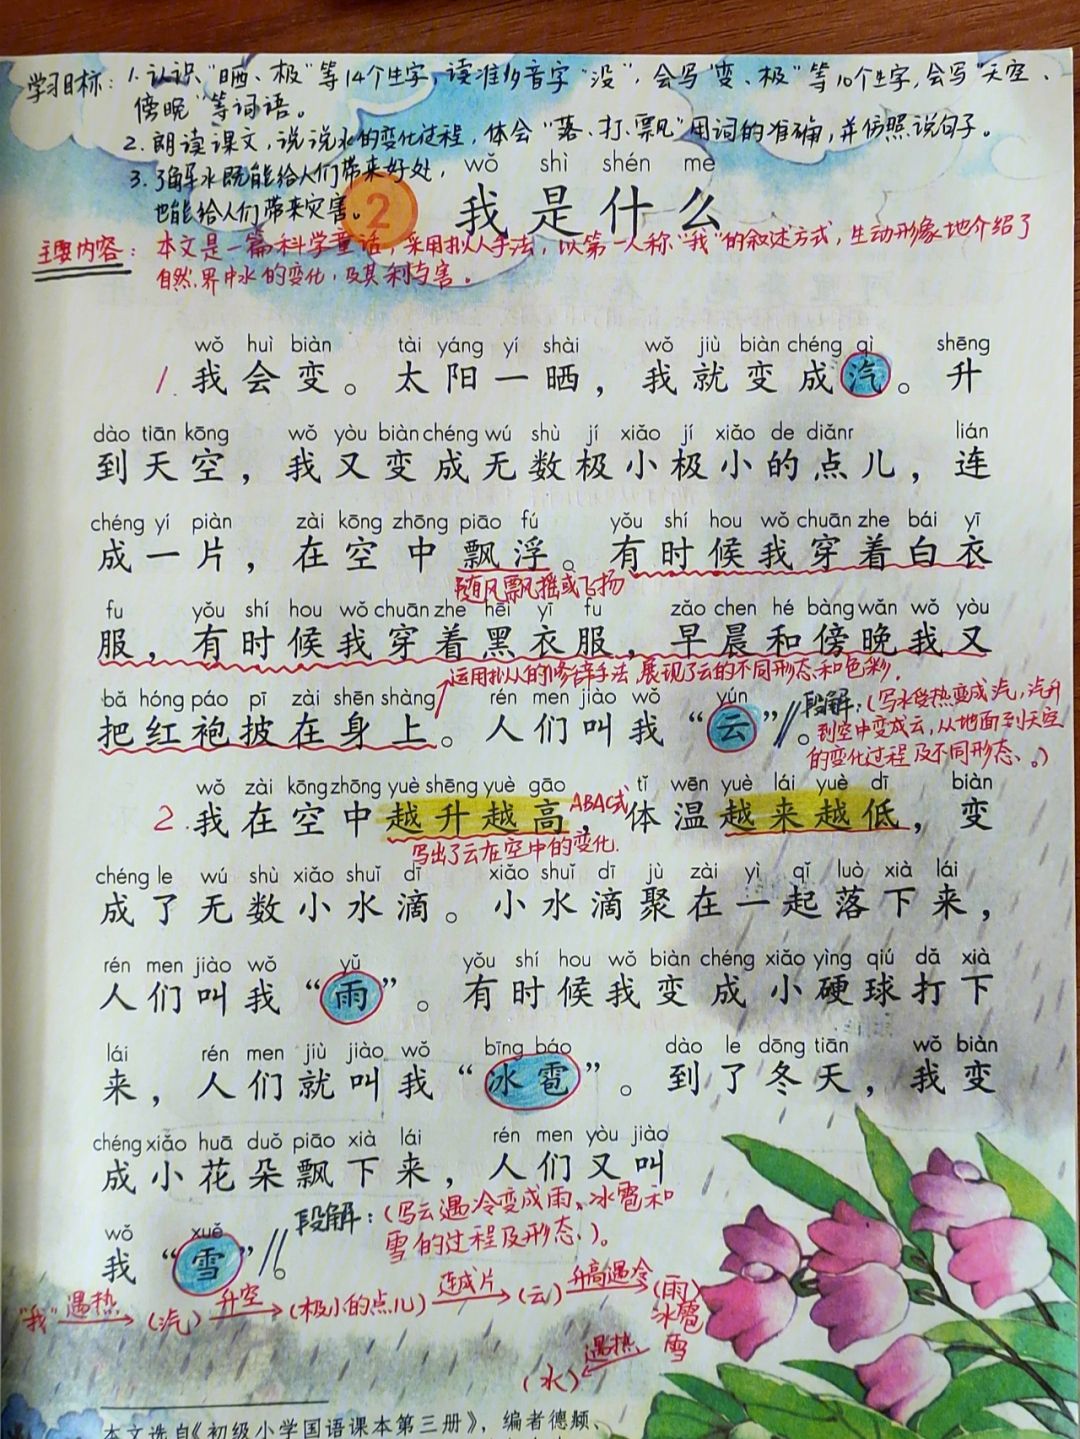 学习目标：1.认识"晒、极"等14个生字，读准多音字"没"，会写"变、极"等10个生字，会写"天空、
傍晚"等词语。
2.朗读课文，说说水的变化过程，体会"落、打、飘"用词的准确，并仿照说句子。
3.了解水既能给人们带来好处，
也能给人们带来灾害。
wǒ shì shén me
2 我是什么
主要内容：本文是一篇科学童话，采用拟人手法，以第一人称"我"的叙述方式，生动形象地介绍了
自然界中水的变化，及其利与害。
wǒ huì biàn tài yáng yí shài wǒ jiù biàn chéng qì shēng
1.我会变。太阳一晒，我就变成汽。升
dào tiān kōng wǒ yòu biàn chéng wú shù jí xiǎo jí xiǎo de diǎnr lián
到天空，我又变成无数极小极小的点儿，连
chéng yí piàn zài kōng zhōng piāo fú yǒu shí hou wǒ chuān zhe bái yī
成一片，在空中飘浮。有时候我穿着白衣
随风飘摇或飞扬
fu yǒu shí hou wǒ chuān zhe hēi yī fu zǎo chen hé bàng wǎn wǒ yòu
服，有时候我穿着黑衣服，早晨和傍晚我又
运用拟人的修辞手法，展现了云的不同形态和色彩。
bǎ hóng páo pī zài shēn shàng rén men jiào wǒ yún
把红袍披在身上。人们叫我“云”。
段解：(写水受热变成汽，汽升
到空中变成云，从地面到天空
的变化过程及不同形态。)
wǒ zài kōng zhōng yuè shēng yuè gāo tǐ wēn yuè lái yuè dī biàn
2.我在空中越升越高，体温越来越低，变
ABAC式
写出了云在空中的变化.
chéng le wú shù xiǎo shuǐ dī xiǎo shuǐ dī jù zài yì qǐ luò xià lái
成了无数小水滴。小水滴聚在一起落下来，
rén men jiào wǒ yǔ yǒu shí hou wǒ biàn chéng xiǎo yìng qiú dǎ xià
人们叫我“雨”。有时候我变成小硬球打下
lái rén men jiù jiào wǒ bīng báo dào le dōng tiān wǒ biàn
来，人们就叫我“冰雹”。到了冬天，我变
chéng xiǎo huā duǒ piāo xià lái rén men yòu jiào
成小花朵飘下来，人们又叫
wǒ xuě
我“雪”。
段解：(写云遇冷变成雨、冰雹和
雪的过程及形态。)。
"我" 遇热→(汽) 升空→(极小的点儿) 连成片→(云) 升高遇冷→(雨)
冰雹
雪
遇热
(水)
本文选自《初级小学国语课本第三册》，编者德颊、